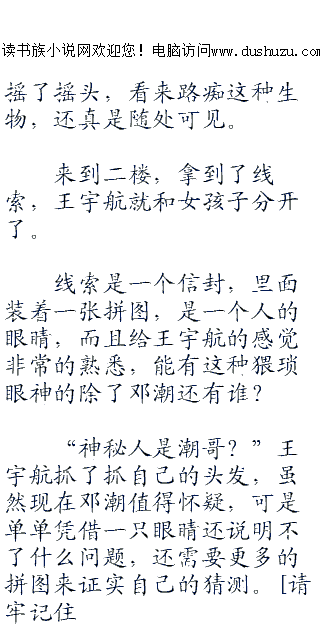 读书族小说网欢迎您！电脑访问www.dushuzu.com
摇了摇头，看来路痴这种生
物，还真是随处可见。
来到二楼，拿到了线
索，王宇航就和女孩子分开
了。
线索是一个信封，里面
装着一张拼图，是一个人的
眼睛，而且给王宇航的感觉
非常的熟悉，能有这种猥琐
眼神的除了邓潮还有谁？
“神秘人是潮哥？”王
宇航抓了抓自己的头发，虽
然现在邓潮值得怀疑，可是
单单凭借一只眼睛还说明不
了什么问题，还需要更多的
拼图来证实自己的猜测。[请
牢记住